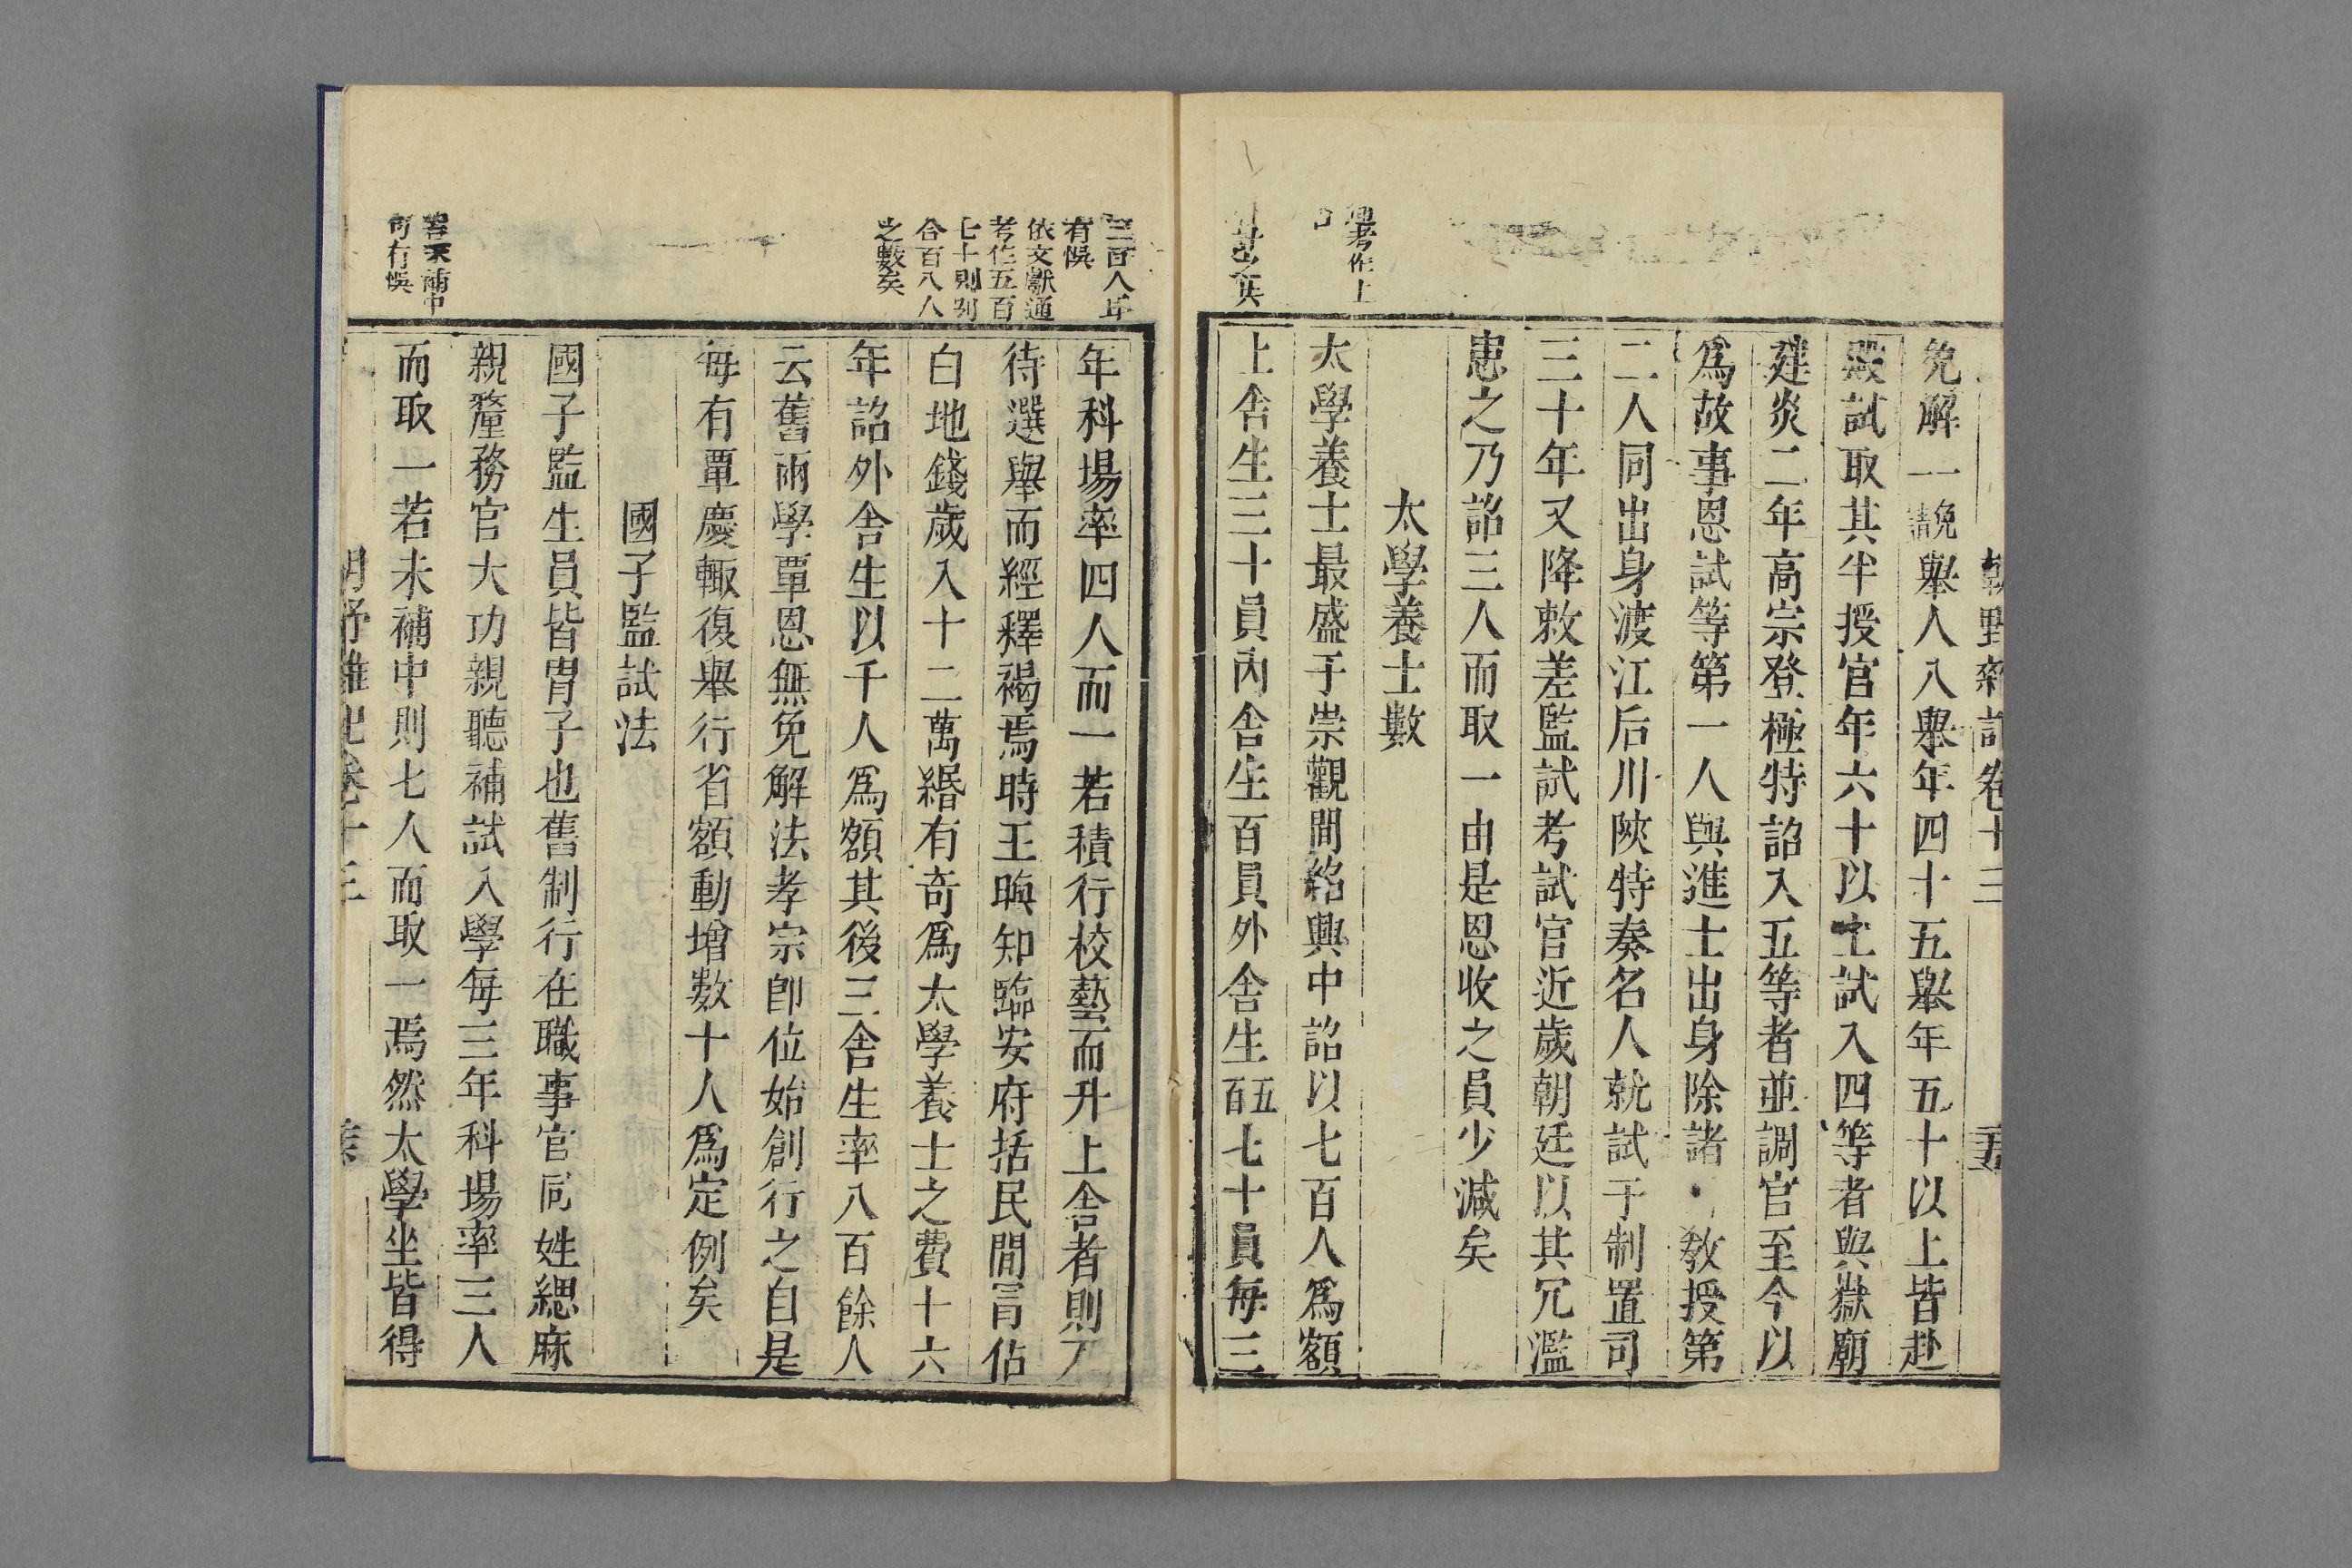 朝野雜記卷十三
免解一晚舉人八舉年四十五舉年五十以上皆赴
殿試取其半授官年六十以上試入四等者與嶽廟
建炎二年高宗登極特詔入五等者並調官至今以
爲故事恩試等第一人與進士出身除諸敎授第
二人同出身渡江后川陝特奏名人就試于制置司
三十年又降敕差監試考試官近歲朝廷以其冗濫
患之乃詔三人而取一由是恩收之員少減矣
太學養士數
太學養士最盛于崇觀間紹興中詔以七百人爲額
上舍生三十員內舍生百員外舍生五百七十員每三
考作上
年科場率四人而一若積行校藝而升上舍者則
待選舉而經釋褐焉時王㬇知臨安府括民間冐佔
白地錢歲入十二萬緡有奇爲太學養士之費十六
年詔外舍生以千人爲額其後三舍生率八百餘人
云舊兩學覃恩無免解法孝宗卽位始創行之自是
每有覃慶輒復舉行省額動增數十人爲定例矣
國子監試法
國子監生員皆胄子也舊制行在職事官同姓緦麻
親釐務官大功親聽補試入學每三年科場率三人
而取一若未補中則七人而取一焉然太學坐皆得
三百人耳
有悞
依文獻通
考作五百
七十則列
合百八人
之數矣
若未補中
句有悞
朝野雜記卷十三